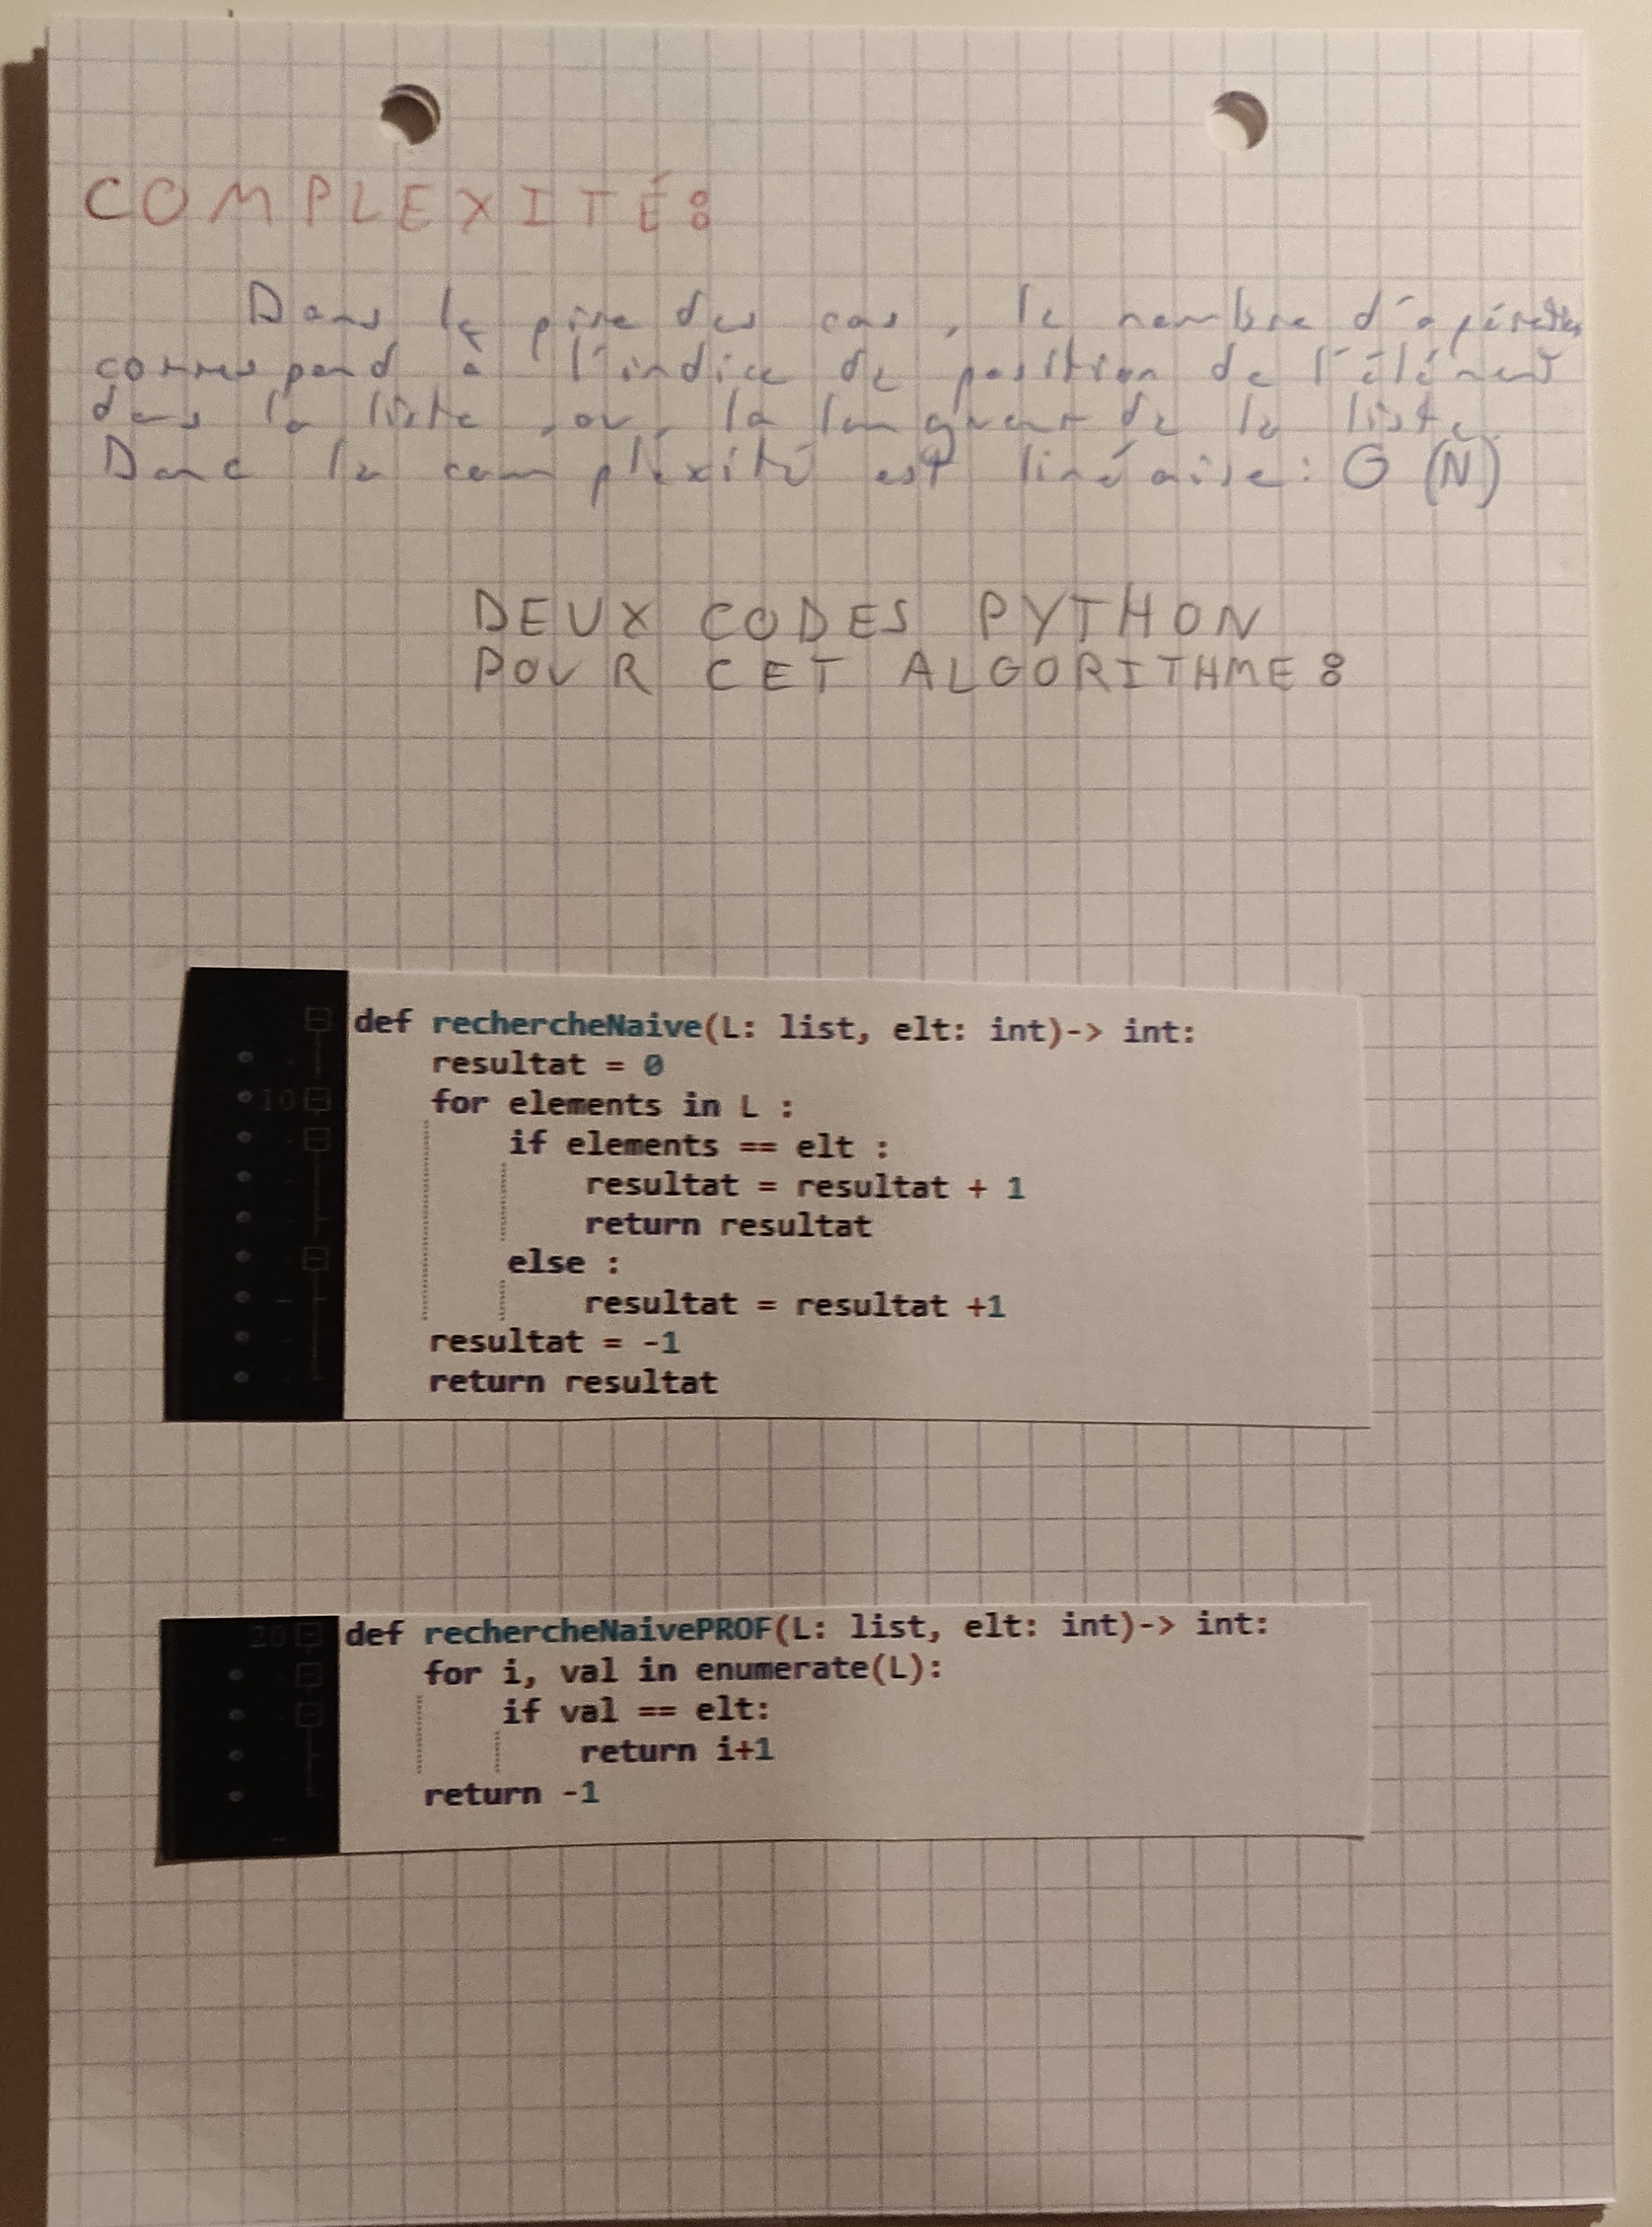 COMPLEXITÉ:
Dans le pire des cas, le nombre d'opérations
correspond à l'indice de position de l'élément
dans la liste, ou, la longueur de la liste.
Donc la complexité est linéaire: O (N)
DEUX CODES PYTHON
POUR CET ALGORITHME:
def rechercheNaive(L: list, elt: int)-> int:
    resultat = 0
10    for elements in L :
        if elements == elt :
            resultat = resultat + 1
            return resultat
        else :
            resultat = resultat +1
    resultat = -1
    return resultat
20 def rechercheNaivePROF(L: list, elt: int)-> int:
    for i, val in enumerate(L):
        if val == elt:
            return i+1
    return -1